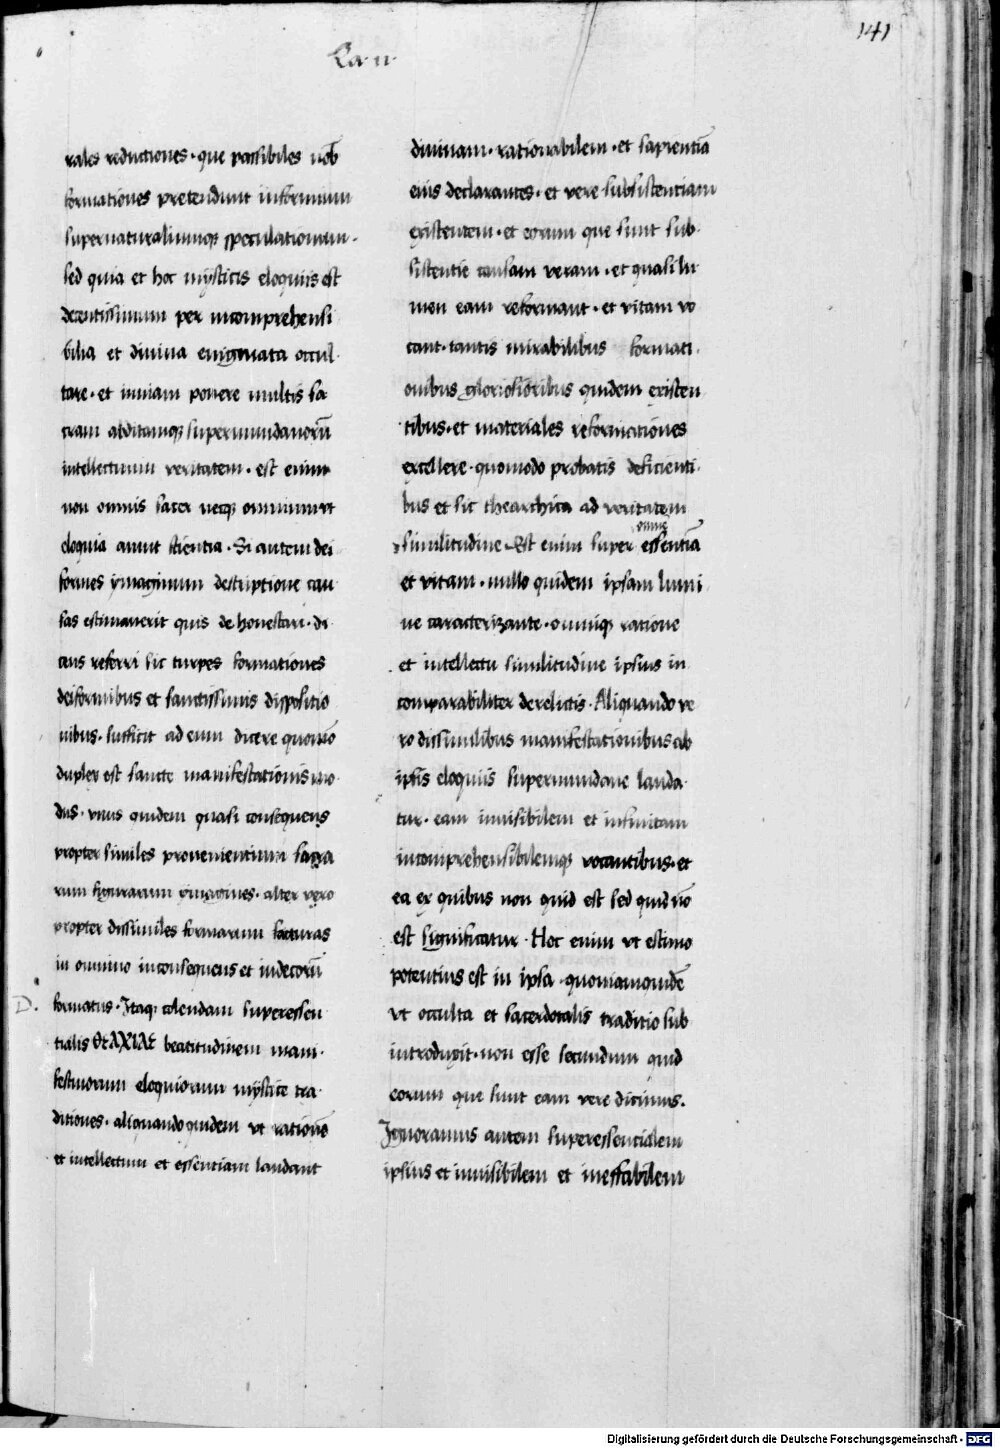 141
Ca. II.
rales reductiones. que possibiles nob̄
formationes pretendunt informium
supernaturaliumqȝ speculationum.
sed quia et hoc mysticis eloquiis est
decentissimum per incomprehensi
bilia et divina enigmata occul
tare. et inviam ponere multis sa
cram abditamqȝ supermundanorū
intellectuum veritatem. est enim
non omnis sacer neqȝ omnium vt
eloquia aiunt scientia. Si autem dei
formes ymaginum descriptione cau
sas estimaverit quis dehonestari. di
cens referri sic turpes formationes
deiformibus et sanctissimis dispositio
nibus. sufficit ad eum dicere quoniā
duplex est sancte manifestationis mo
dus. vnus quidem quasi consequens
propter similes provenientium sacra
rum figurarum ymagines. alter vero
propter dissimiles formarum facturas
in omnino inconsequens et indecorū
D. formatus. Itaqȝ colendam superessen
tialis ΘΕΑΧΙΑΕ beatitudinem mani
festivorum eloquiorum mystice tra
ditiones. aliquando quidem vt rationē
et intellectum et essentiam laudant
divinam. rationabilem. et sapientiā
eius declarantes. et vere subsistentiam
existentem. et eorum que sunt sub
sistentie causam veram. et quasi lu
men eam reformant. et vitam vo
cant. tantis mirabilibus formati
onibus gloriosioribus quidem existen
tibus. et materiales reformationes
excellere. quomodo probatis deficienti
bus et sic thearchica ad veritatem
omnē
similitudine Est enim super essentiā
et vitam. nullo quidem ipsam lumi
ne caracterizante. omniqȝ ratione
et intellectu similitudine ipsius in
comparabiliter derelictis. Aliquando ve
ro dissimilibus manifestationibus ab
ipsis eloquiis supermundane lauda
tur. eam invisibilem et infinitam
incomprehensibilemqȝ vocantibus. et
ea ex quibus non quid est sed quid nō
est significatur. Hoc enim vt estimo
potentius est in ipsa. quoniamquidē
vt occulta et sacerdotalis traditio sub
introduxit. non esse secundum quid
eorum que sunt eam vere dicimus.
Ignoramus autem superessentialem
ipsius et invisibilem et ineffabilem
Digitalisierung gefördert durch die Deutsche Forschungsgemeinschaft - DFG